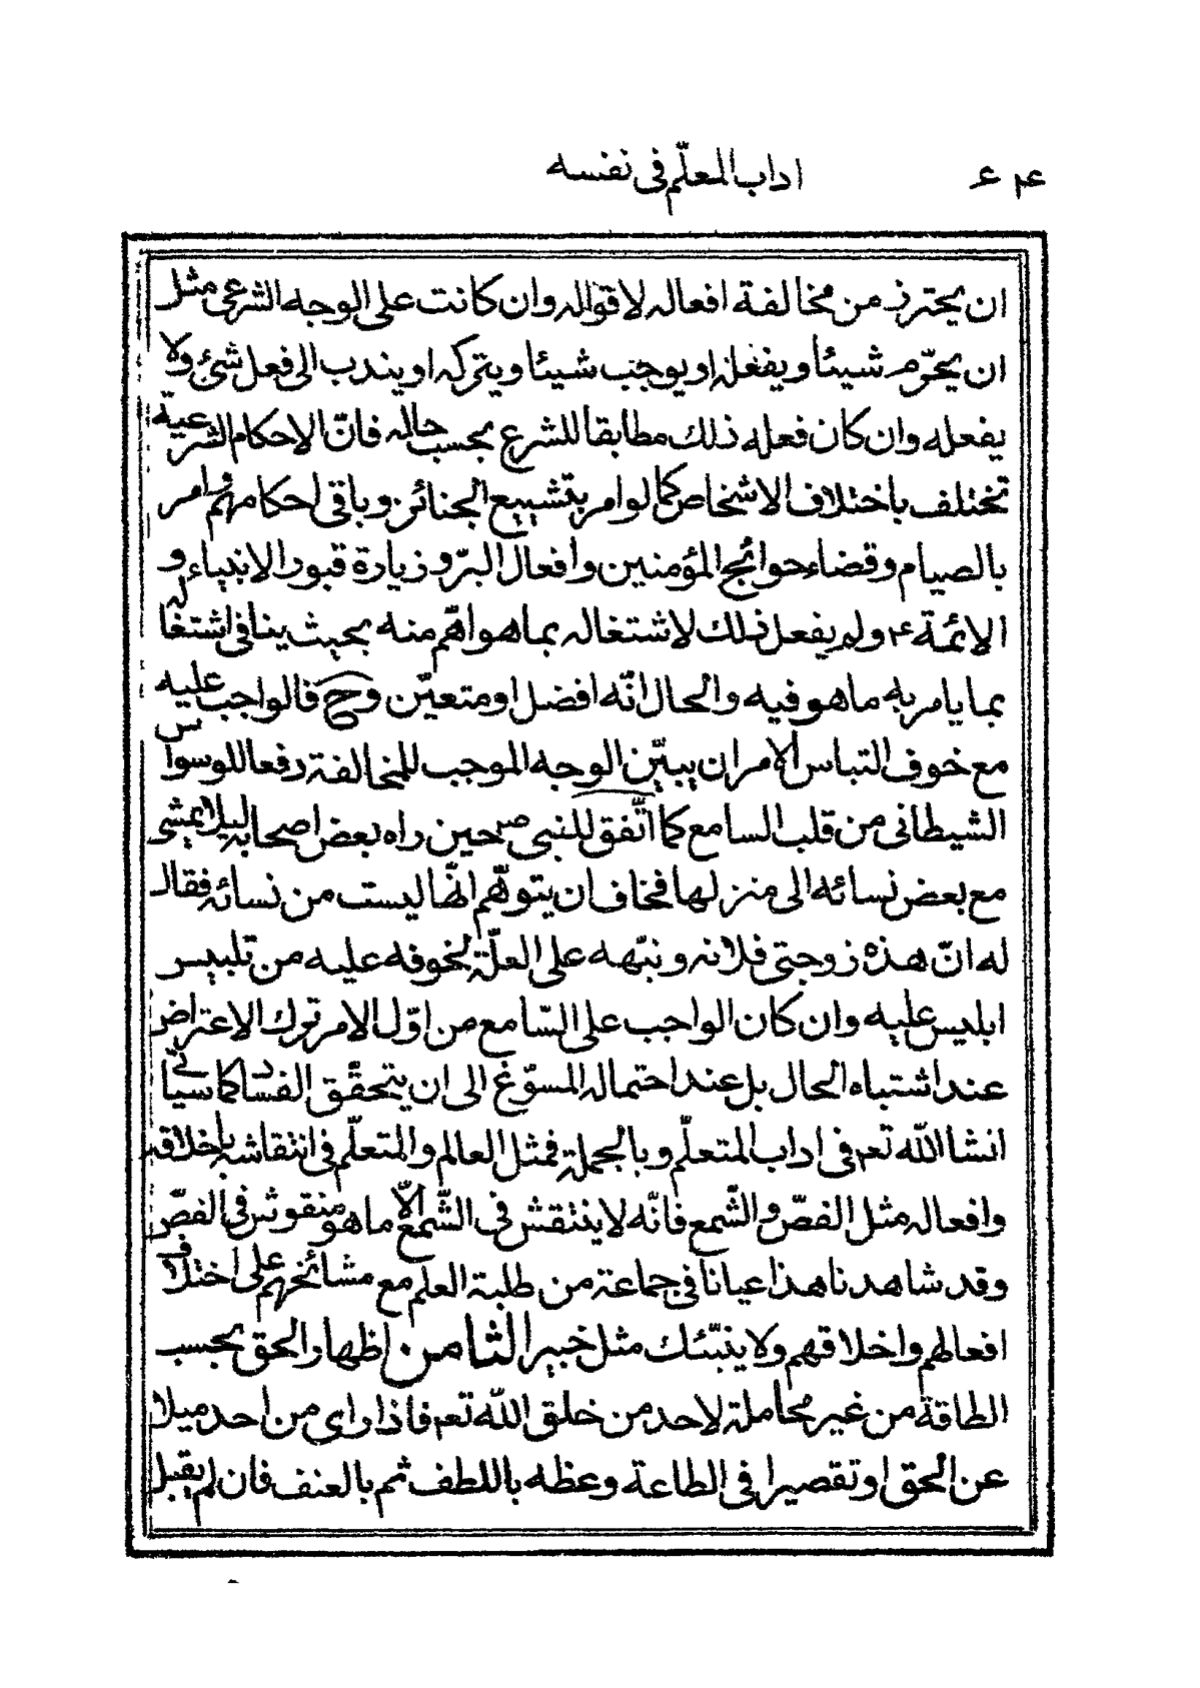 عم ع اداب المعلّم فى نفسه
ان يحترز من مخالفة افعاله لاقواله وان كانت على الوجه الشرعى مثل
ان يحرّم شيئا ويفعله او يوجب شيئا ويتركه او يندب الى فعل شئ ولا
يفعله وان كان فعله ذلك مطابقا للشرع بحسب حاله فانّ الاحكام الشرعيّة
تختلف باختلاف الاشخاص كما لو امر بتشييع الجنائز وباقى احكامهم وامر
بالصيام وقضاء حوائج المؤمنين وافعال البرّ وزيارة قبور الانبياء و
الائمة ع ولم يفعل ذلك لاشتغاله بما هو اهّم منه بحيث ينافى اشتغاله
بما يامر به ما هو فيه والحال انّه افضل او متعيّن وح فالواجب عليه
مع خوف التباس الامر ان يبيّن الوجه الموجب للمخالفة دفعا للوسواس
الشيطانى من قلب السامع كما اتّفق للنبى ص حين راه بعض اصحابه ليلا يمشى
مع بعض نسائه الى منزلها فخاف ان يتوهّم انّها ليست من نسائه فقال
له انّ هذه زوجتى فلانه ونبّهه على العلّة لخوفه عليه من تلبيس
ابليس عليه وان كان الواجب على السّامع من اوّل الامر ترك الاعتراض
عند اشتباه الحال بل عند احتماله المسوّغ الى ان يتحقّق الفساد كما سياتى
انشا الله تعم فى اداب المتعلّم وبالجملة فمثل العالم والمتعلّم فى انتقاشه باخلاقه
وافعاله مثل الفصّ والشّمع فانّه لا ينتقش فى الشّمع الّا ما هو منقوش فى الفصّ
وقد شاهدنا هذا عيانا فى جماعة من طلبة العلم مع مشائخهم على اختلاف
افعالهم واخلاقهم ولا ينبّئك مثل خبير الثامن اظهار الحق بحسب
الطاقة من غير مجاملة لاحد من خلق الله تعم فاذا راى من احد ميلا
عن الحق او تقصيرا فى الطاعة وعظه باللطف ثم بالعنف فان لم يقبل